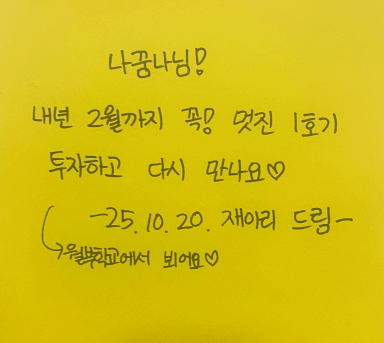 나꿈나님!
내년 2월까지 꼭! 멋진 1호기
투자하고 다시 만나요♡
-25.10.20. 재아리 드림-
→월부학교에서 뵈어요♡